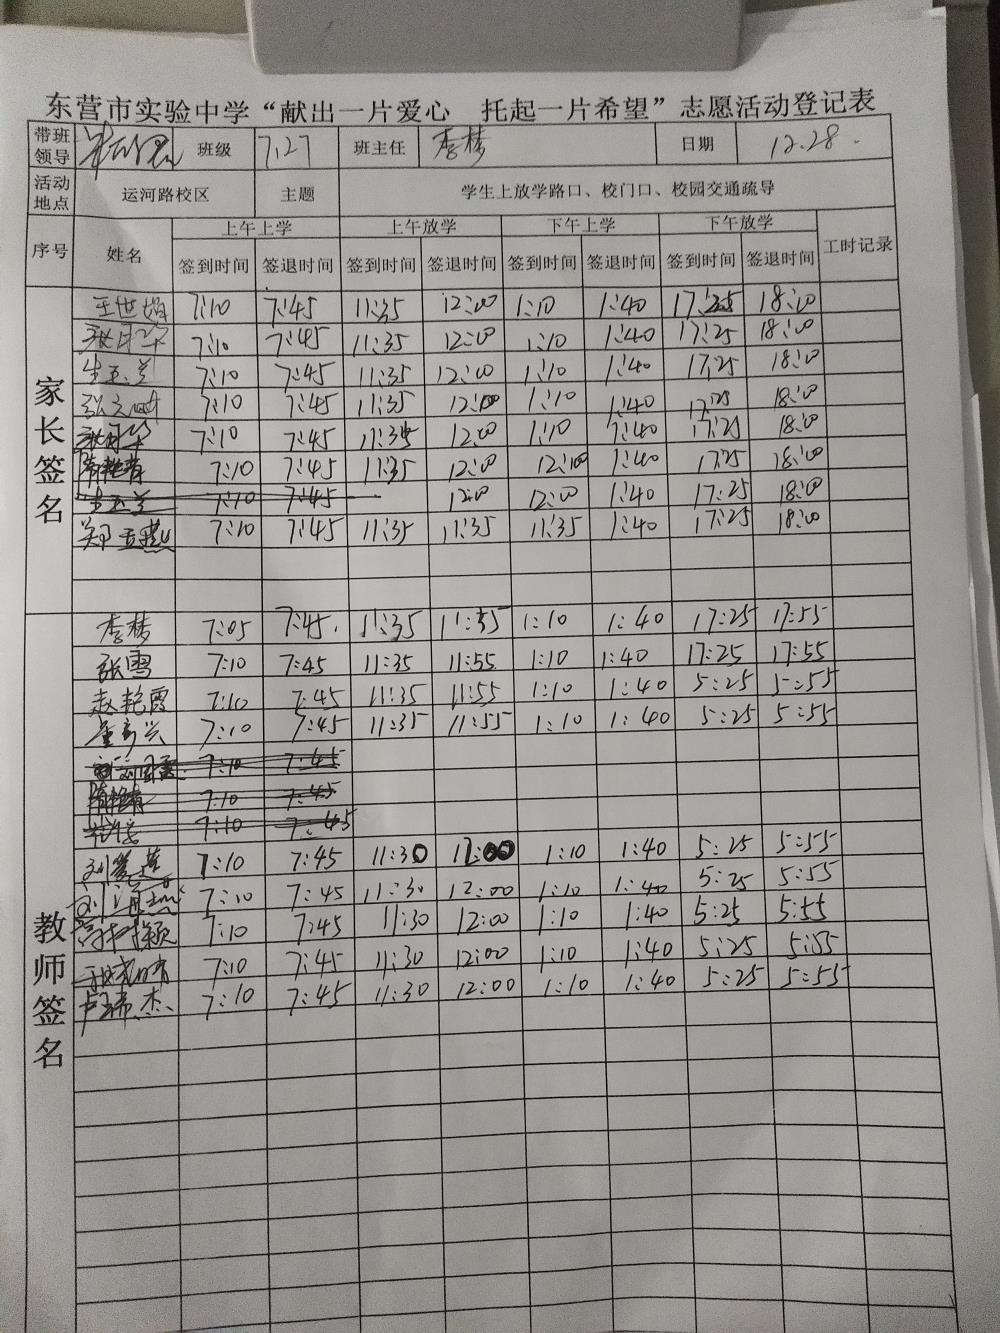 东营市实验中学“献出一片爱心 托起一片希望”志愿活动登记表
带班领导 班级 7.27 班主任 李梦 日期 12.28.
活动地点 运河路校区 主题 学生上放学路口、校门口、校园交通疏导
序号 姓名 上午上学 上午放学 下午上学 下午放学 工时记录
签到时间 签退时间 签到时间 签退时间 签到时间 签退时间 签到时间 签退时间
家长签名
7:10 7:45 11:35 12:00 1:10 1:40 17:25 18:00
7:10 7:45 11:35 12:00 1:10 1:40 17:25 18:00
生玉兰 7:10 7:45 11:35 12:00 1:10 1:40 17:25 18:00
7:10 7:45 11:35 12:00 1:10 1:40 17:25 18:00
7:10 7:45 11:35 12:00 1:10 1:40 17:25 18:00
隋艳青 7:10 7:45 11:35 12:00 12:00 1:40 17:25 18:00
生玉兰 7:10 7:45 12:00 12:00 1:40 17:25 18:00
郑玉燕 7:10 7:45 11:35 11:35 11:35 1:40 17:25 18:00
教师签名
李梦 7:05 7:45. 11:35 11:55 1:10 1:40 17:25 17:55
张雪 7:10 7:45 11:35 11:55 1:10 1:40 17:25 17:55
赵艳霞 7:10 7:45 11:35 11:55 1:10 1:40 5:25 5:55
7:10 7:45 11:35 11:55 1:10 1:40 5:25 5:55
7:10 7:45
隋艳青 7:10 7:45
7:10 7:45
刘爱莲 7:10 7:45 11:30 12:00 1:10 1:40 5:25 5:55
7:10 7:45 11:30 12:00 1:10 1:40 5:25 5:55
7:10 7:45 11:30 12:00 1:10 1:40 5:25 5:55
7:10 7:45 11:30 12:00 1:10 1:40 5:25 5:55
卢瑞杰 7:10 7:45 11:30 12:00 1:10 1:40 5:25 5:55